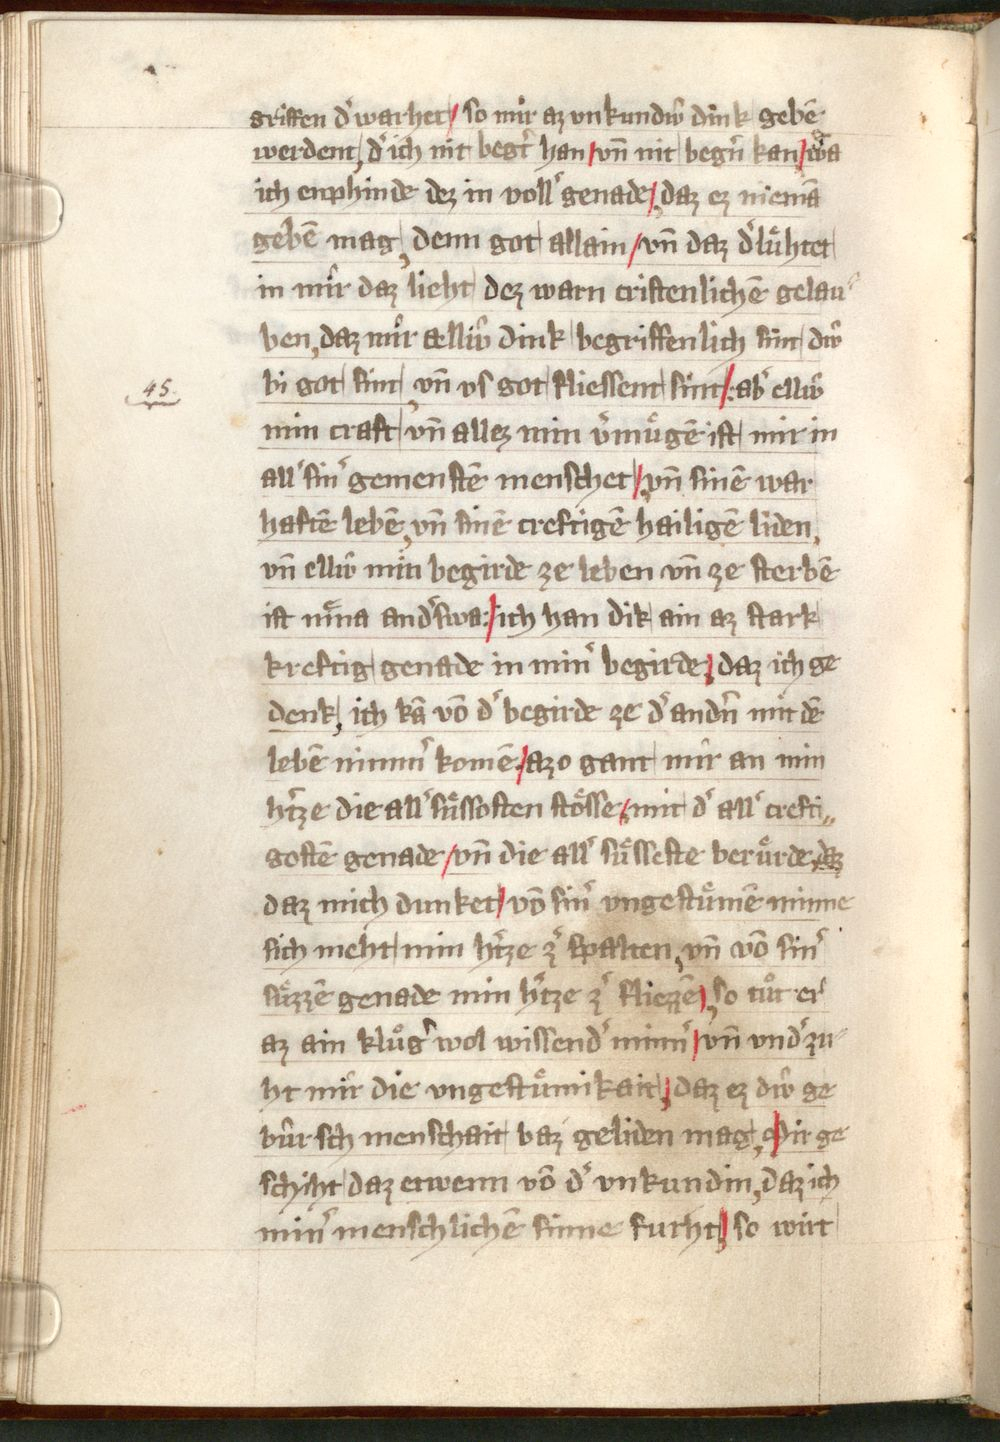 griffen d͛ warhet / so mir az vnkundiv̂ dink gebē
werdent, d͛ ich nit begt͛ han / vn̄ nit begn͛ kan / wa
ich enphinde dez in voll͛ genade / daz ez niemā
gebē mag, denn got allain / vn̄ daz d͛lúhtet
in mir daz lieht dez warn cristenlichē gelau
ben, daz mir ælliv̂ dink begriffenlich sint div̂
bi got sint, vn̄ vs got fliessent sint / ab͛ elliv̂
45.
min craft vn̄ allez min v͛mu̍gē ist mir in
all͛ sin͛ gemenstē menschet / vn̄ sinē war
haftē lebē, vn̄ sinē creftigē hailigē liden,
vn̄ elliv̂ min begirde ze leben vn̄ ze sterbē
ist niena and͛swa: / ich han dik ain az stark
kreftig genade in min͛ begirde / daz ich ge
denk, ich kā vō d͛ begirde ze d͛ andn͛ mit dē
lebē nimm͛ komē / azo gant mir an min
h͛tze die all͛ sůssosten stősse / mit d͛ all͛ crefti„
gostē genade / vn̄ die all͛ sůsseste berůrde,
daz mich dunket / vō sin͛ vngestůmē minne
sich meht min h͛tze z͛ spalten, vn̄ vō sin͛
sůzzē genade min h͛tze z͛ fliezzē / so tůt er
az ain klůg͛ wol wissend͛ minn͛ / vn̄ vnd͛zu
ht mir die vngestůmikait / daz ez div̂ ge
bûrsch menschait baz geliden mag, Mir ge
schiht daz etwenn vō d͛ vnkundin, daz ich
min͛ menschlichē sinne furht / so wirt